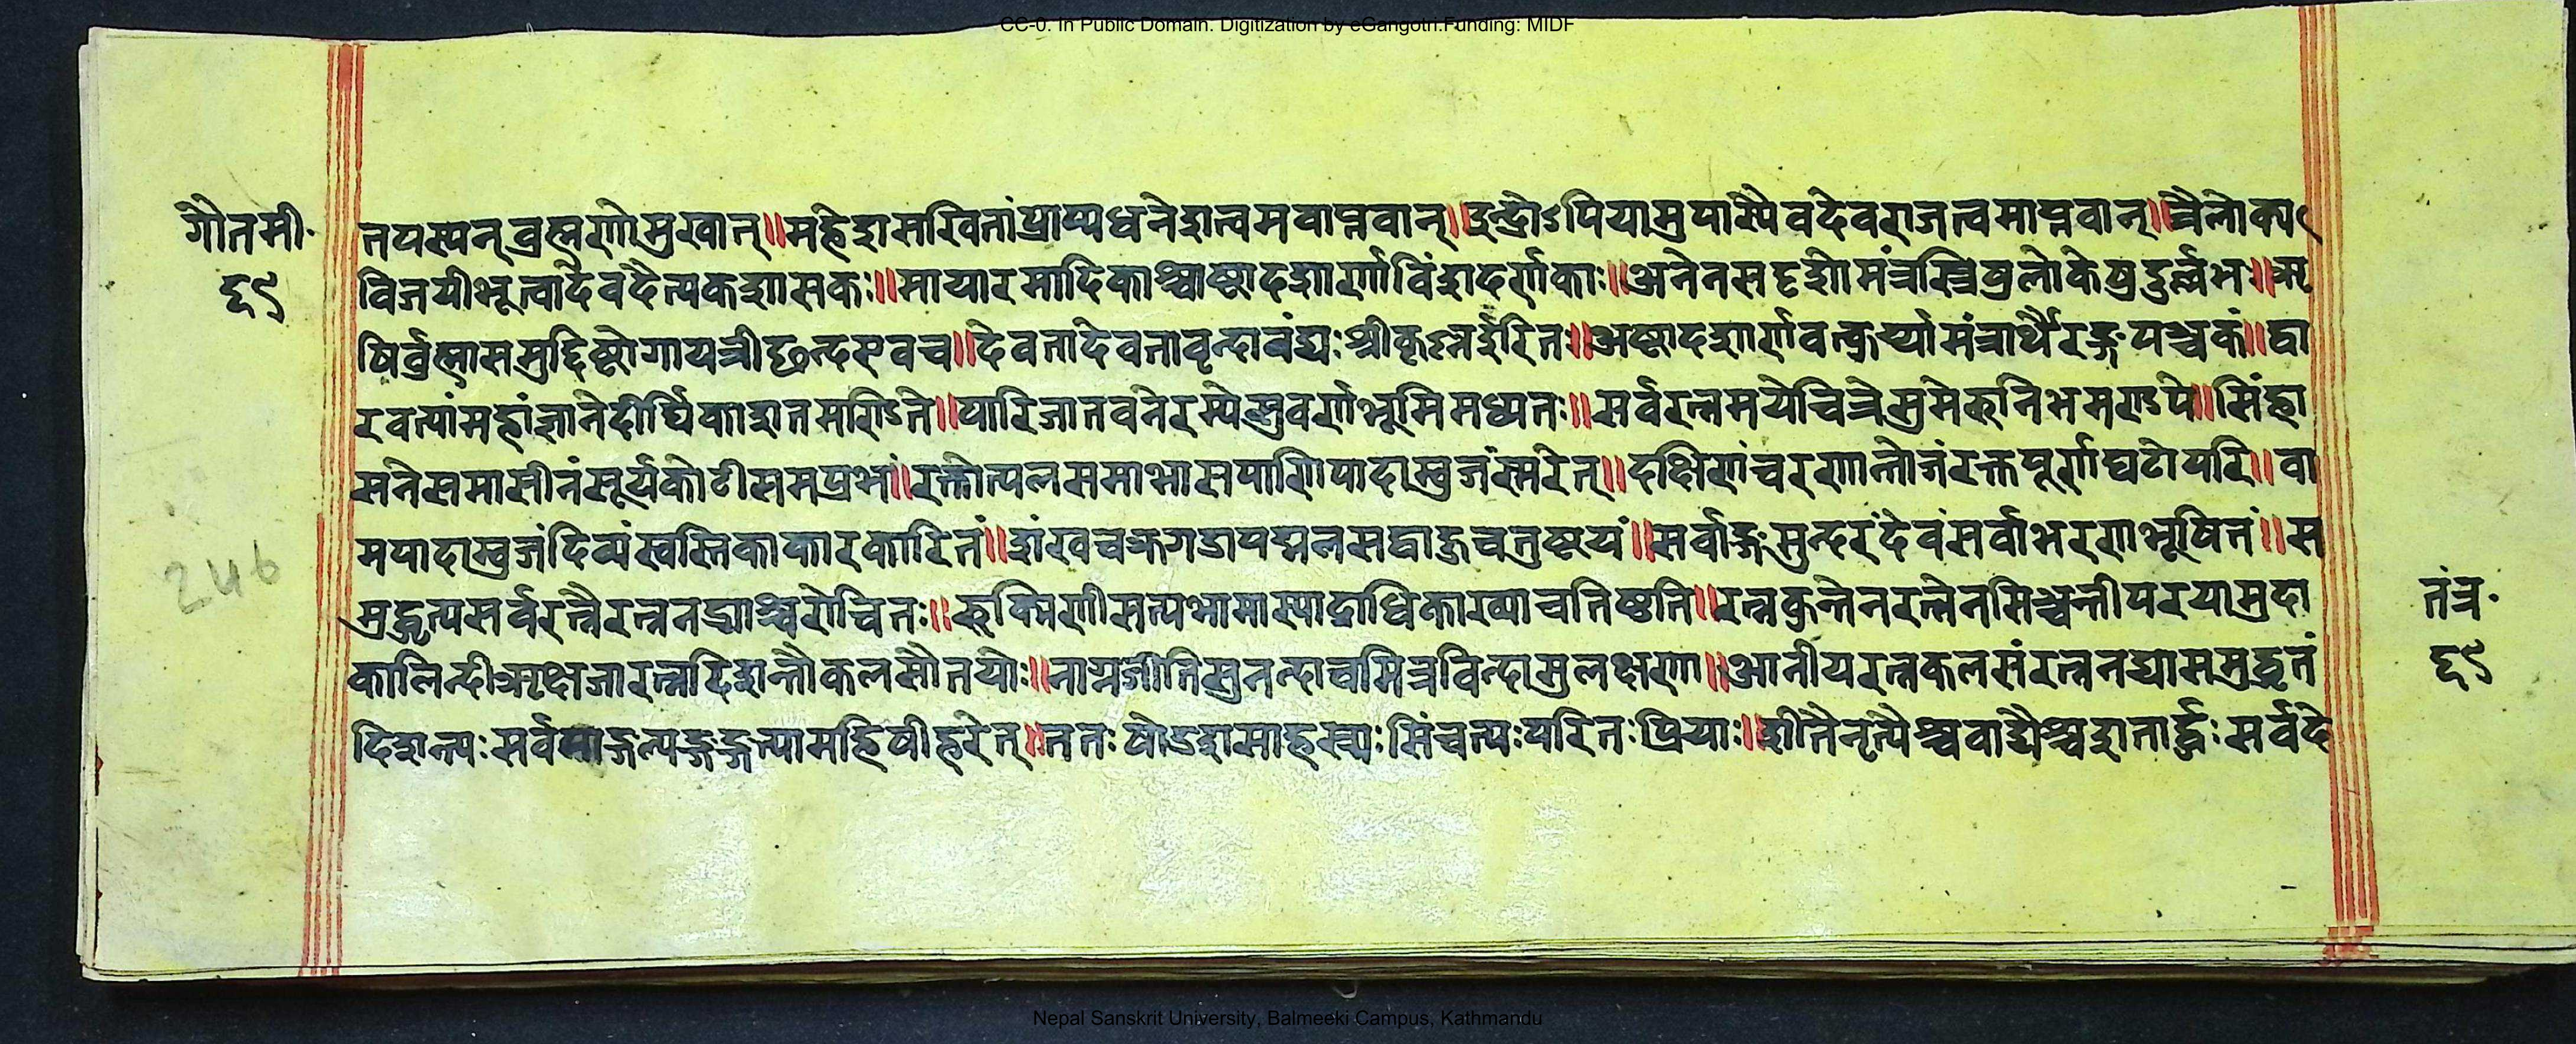 CC-0. In Public Domain. Digitization by eGangotri.Funding: MIDF
गौतमी॰
६९
तपस्यन्ब्रह्मणोमुखात्॥महेशसखितांप्राप्यधनेशत्वमवाप्नवान्॥इन्द्रोऽपियामुपास्यैवदेवराजत्वमाप्नवान्॥त्रैलोक्य
विजयीभूत्वादेवदैत्यकशासकः॥मायारमादिकाश्चाष्टादशार्णाविंशदर्णकाः॥अनेनसदृशोमंत्रस्त्रिषुलोकेषुदुर्ल्लभः॥ऋ
षिर्ब्रह्मासमुद्दिष्टोगायत्रीछन्दएवच॥देवतादेवतावृन्दावंद्यःश्रीकृष्नईरितः॥अष्टादशार्णवत्कुर्य्यामंत्रार्थैरङ्गपञ्चकं॥द्वा
रवत्यांमहोद्यानेदीर्घिकाशतमण्डिते॥पारिजातवनेरम्येसुवर्णभूमिमध्यतः॥सर्वरत्नमयेचित्रेसुमेरुनिभमण्डपे॥सिंहा
सनेसमासीनंसूर्यकोटीसमप्रभं॥रक्तोत्पलसमाभासपाणिपादाम्बुजंस्मरेत्॥दक्षिणंचरणाम्भोजंरक्तपूर्णघटोपरि॥वा
मपादाम्बुजंदिव्यंस्वस्तिकाकारकारितं॥शंखचक्रगदापद्मलसद्बाहुचतुष्टयं॥सर्वाङ्गसुन्दरंदेवंसर्वाभरणभूषितं॥स
मुद्धृत्यसर्वरत्नैरत्ननद्याश्चरोचितः॥रुक्मिणीसत्यभामास्याद्राधिकाख्याचतिष्ठति॥रत्नकुन्तेनरत्नेनसिञ्चन्तीपरयामुदा
कालिन्दीऋक्षजारत्नदिशन्तौकलसौतयोः॥नाग्नजीतिसुनन्दाचमित्रविन्दासुलक्षणा॥आनीयरत्नकलसंरत्ननद्यासमुद्धृतं
दिशन्त्यःसर्वमाङ्गल्यङ्गङ्गत्यामहिषीहरेत्॥ततःषोडशसाहस्त्र्यःसिंचत्यःपरितःप्रियाः॥शीतैनृत्यैश्चवाद्यैश्चशतार्द्धःसर्वदे
246
तंत्र॰
६९
Nepal Sanskrit University, Balmeeki Campus, Kathmandu